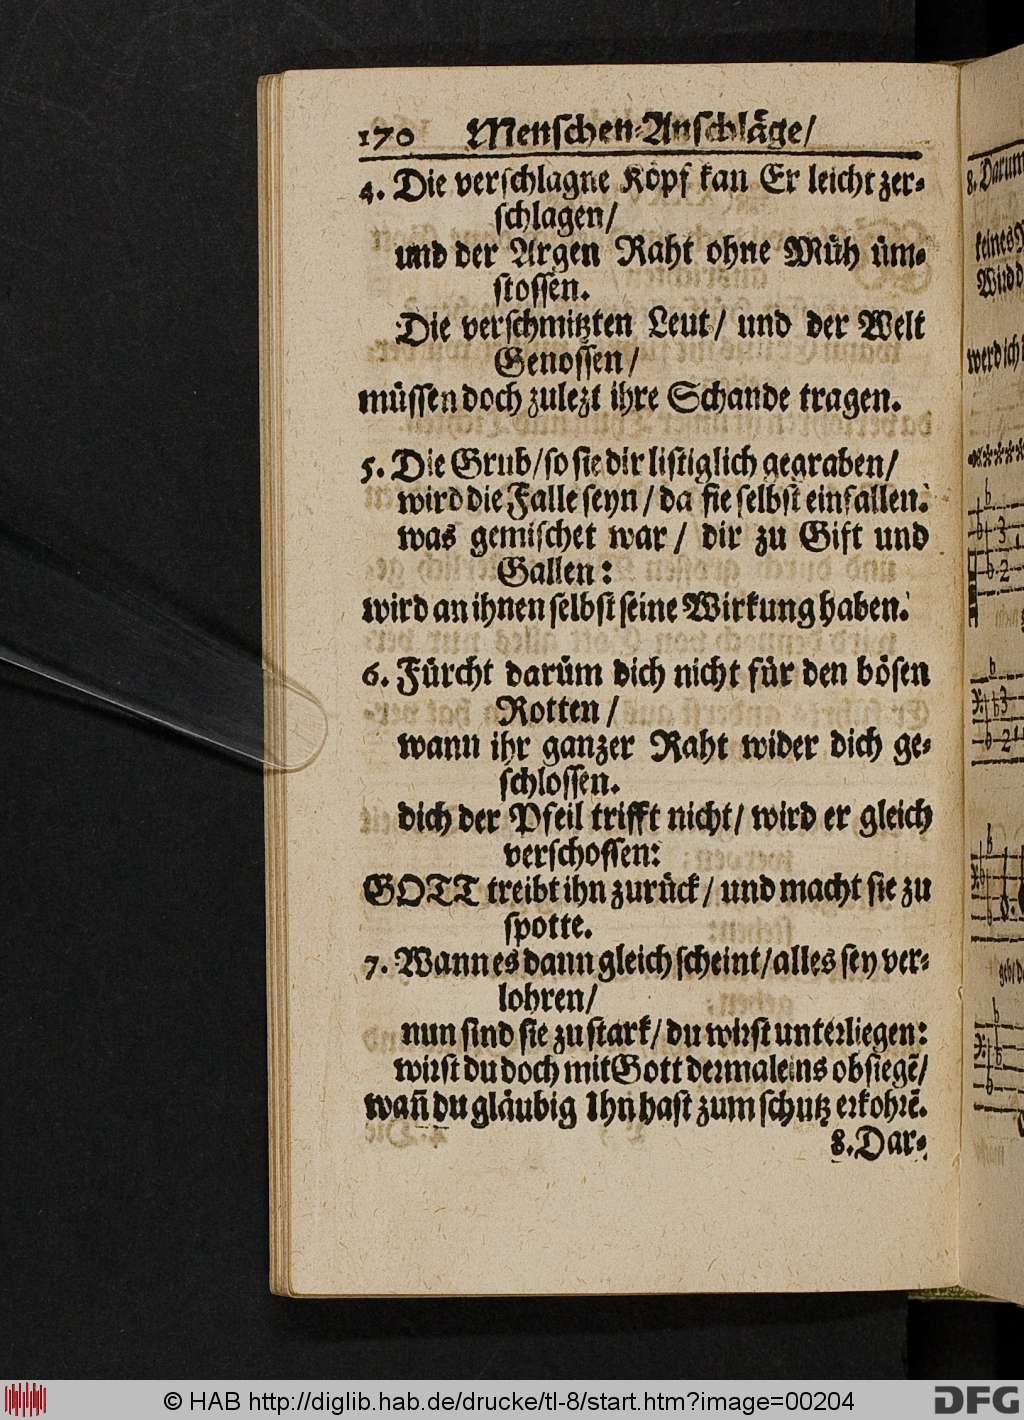 170 Menschen-Anschläge/
4. Die verschlagne Köpf kan Er leicht zer-
schlagen/
und der Argen Raht ohne Müh üm-
stossen.
Die verschmitzten Leut/ und der Welt
Genossen/
müssen doch zulezt ihre Schande tragen.
5. Die Grub/ so sie dir listiglich gegraben/
wird die Falle seyn/ da sie selbst einfallen:
was gemischet war/ dir zu Gift und
Gallen:
wird an ihnen selbst seine Wirkung haben.
6. Fürcht darüm dich nicht für den bösen
Rotten/
wann ihr ganzer Raht wider dich ge-
schlossen.
dich der Pfeil trifft nicht/ wird er gleich
verschossen:
GOTT treibt ihn zurück/ und macht sie zu
spotte.
7. Wann es dann gleich scheint/ alles sey ver-
lohren/
nun sind sie zu stark/ du wirst unterliegen:
wirst du doch mit Gott dermaleins obsiegẽ/
wañ du gläubig Ihn hast zum schutz erkohrẽ.
8. Dar-
8. Darum
keines
Wird d
werd ich
© HAB http://diglib.hab.de/drucke/tl-8/start.htm?image=00204
DFG